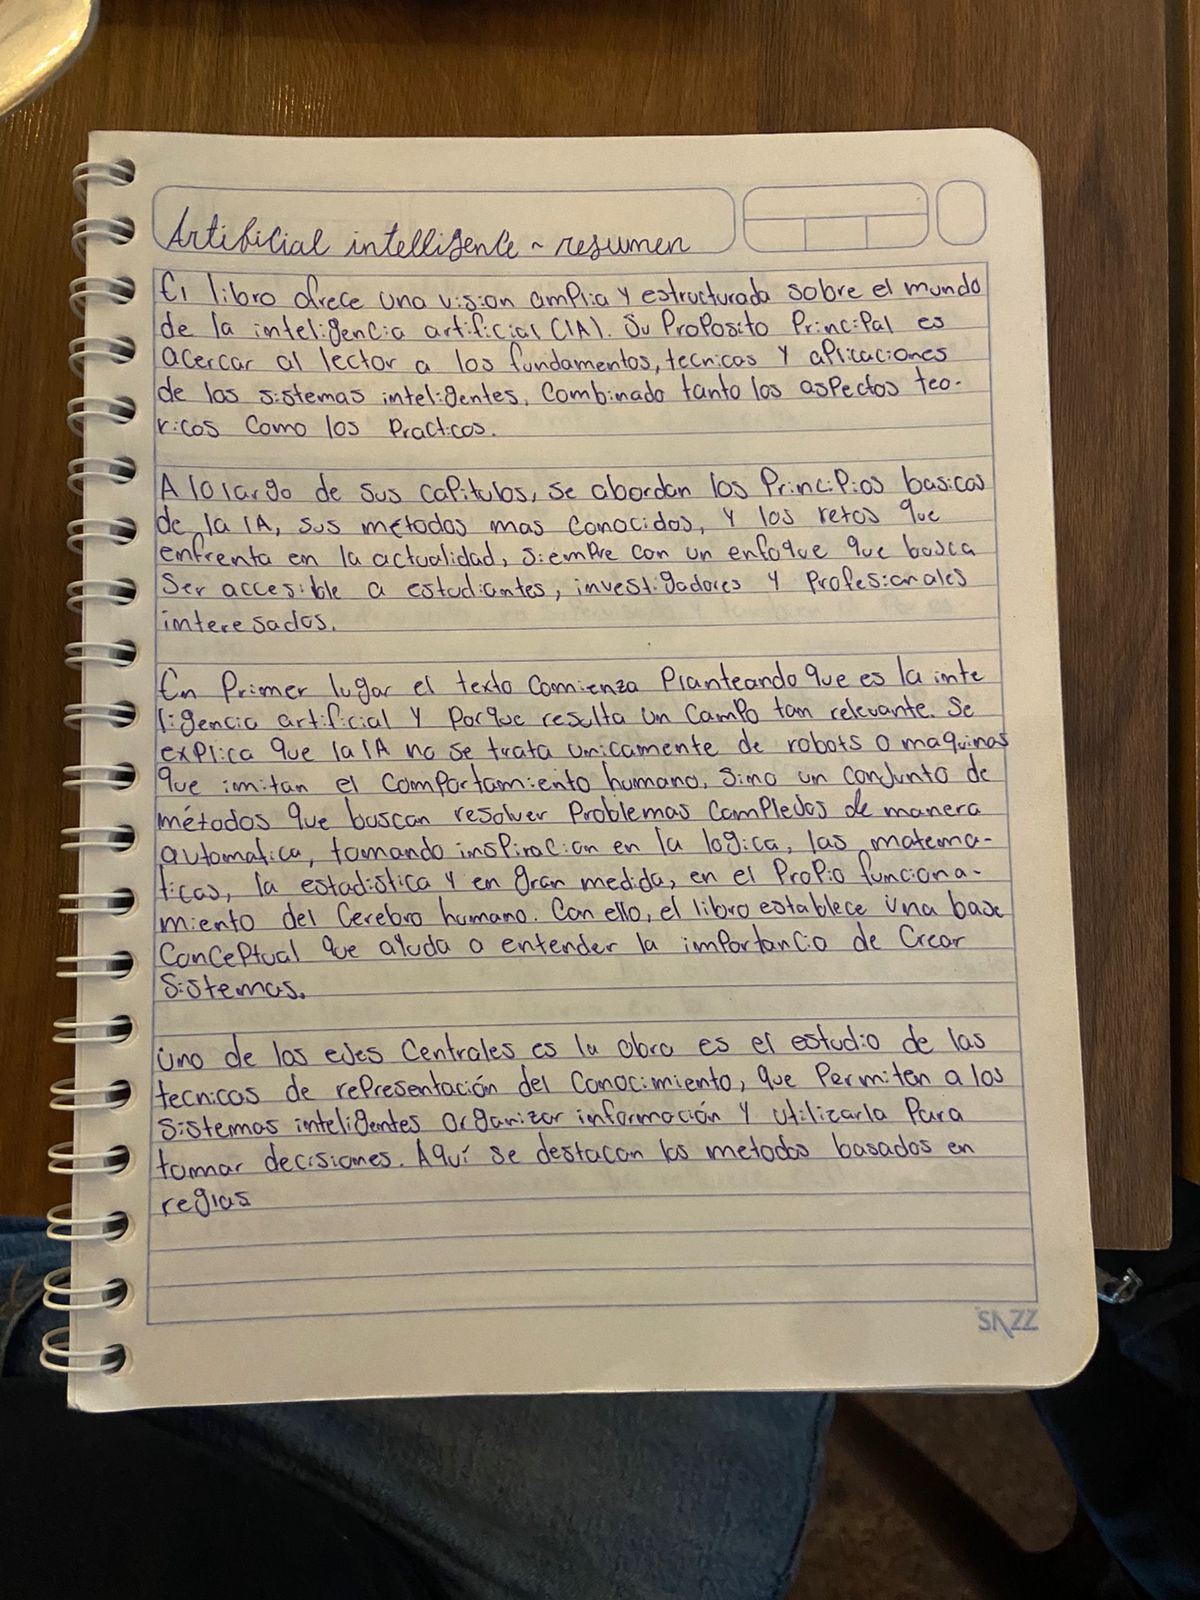 Artificial intelligence ~ resumen
El libro ofrece una vision amplia y estructurada sobre el mundo
de la inteligencia artificial (IA). Su Proposito Principal es
acercar al lector a los fundamentos, tecnicas y aplicaciones
de los sistemas inteligentes, Combinado tanto los aspectos teo-
ricos Como los Practicos.
A lo largo de sus capitulos, se abordan los Principios basicos
de la IA, sus métodos mas Conocidos, y los retos que
enfrenta en la actualidad, siempre con un enfoque que busca
Ser accesible a estudiantes, investigadores y Profesionales
interesados.
En Primer lugar el texto Comienza Planteando que es la inte
ligencia artificial y Porque resulta un Campo tam relevante. Se
explica que la IA no se trata unicamente de robots o maquinas
que imitan el Comportamiento humano, Sino un conjunto de
métodos que buscan resolver Problemas Complejos de manera
automatica, tomando inspiracion en la logica, las matema-
ticas, la estadistica y en gran medida, en el Propio funciona-
miento del Cerebro humano. Con ello, el libro establece una base
Conceptual que ayuda a entender la importancia de Crear
Sistemas.
Uno de los ejes Centrales es la Obra es el estudio de las
tecnicas de representación del Conocimiento, que Permiten a los
Sistemas inteligentes organizar información y utilizarla Para
tomar decisiones. Aquí se destacan los metodos basados en
reglas
SAZZ